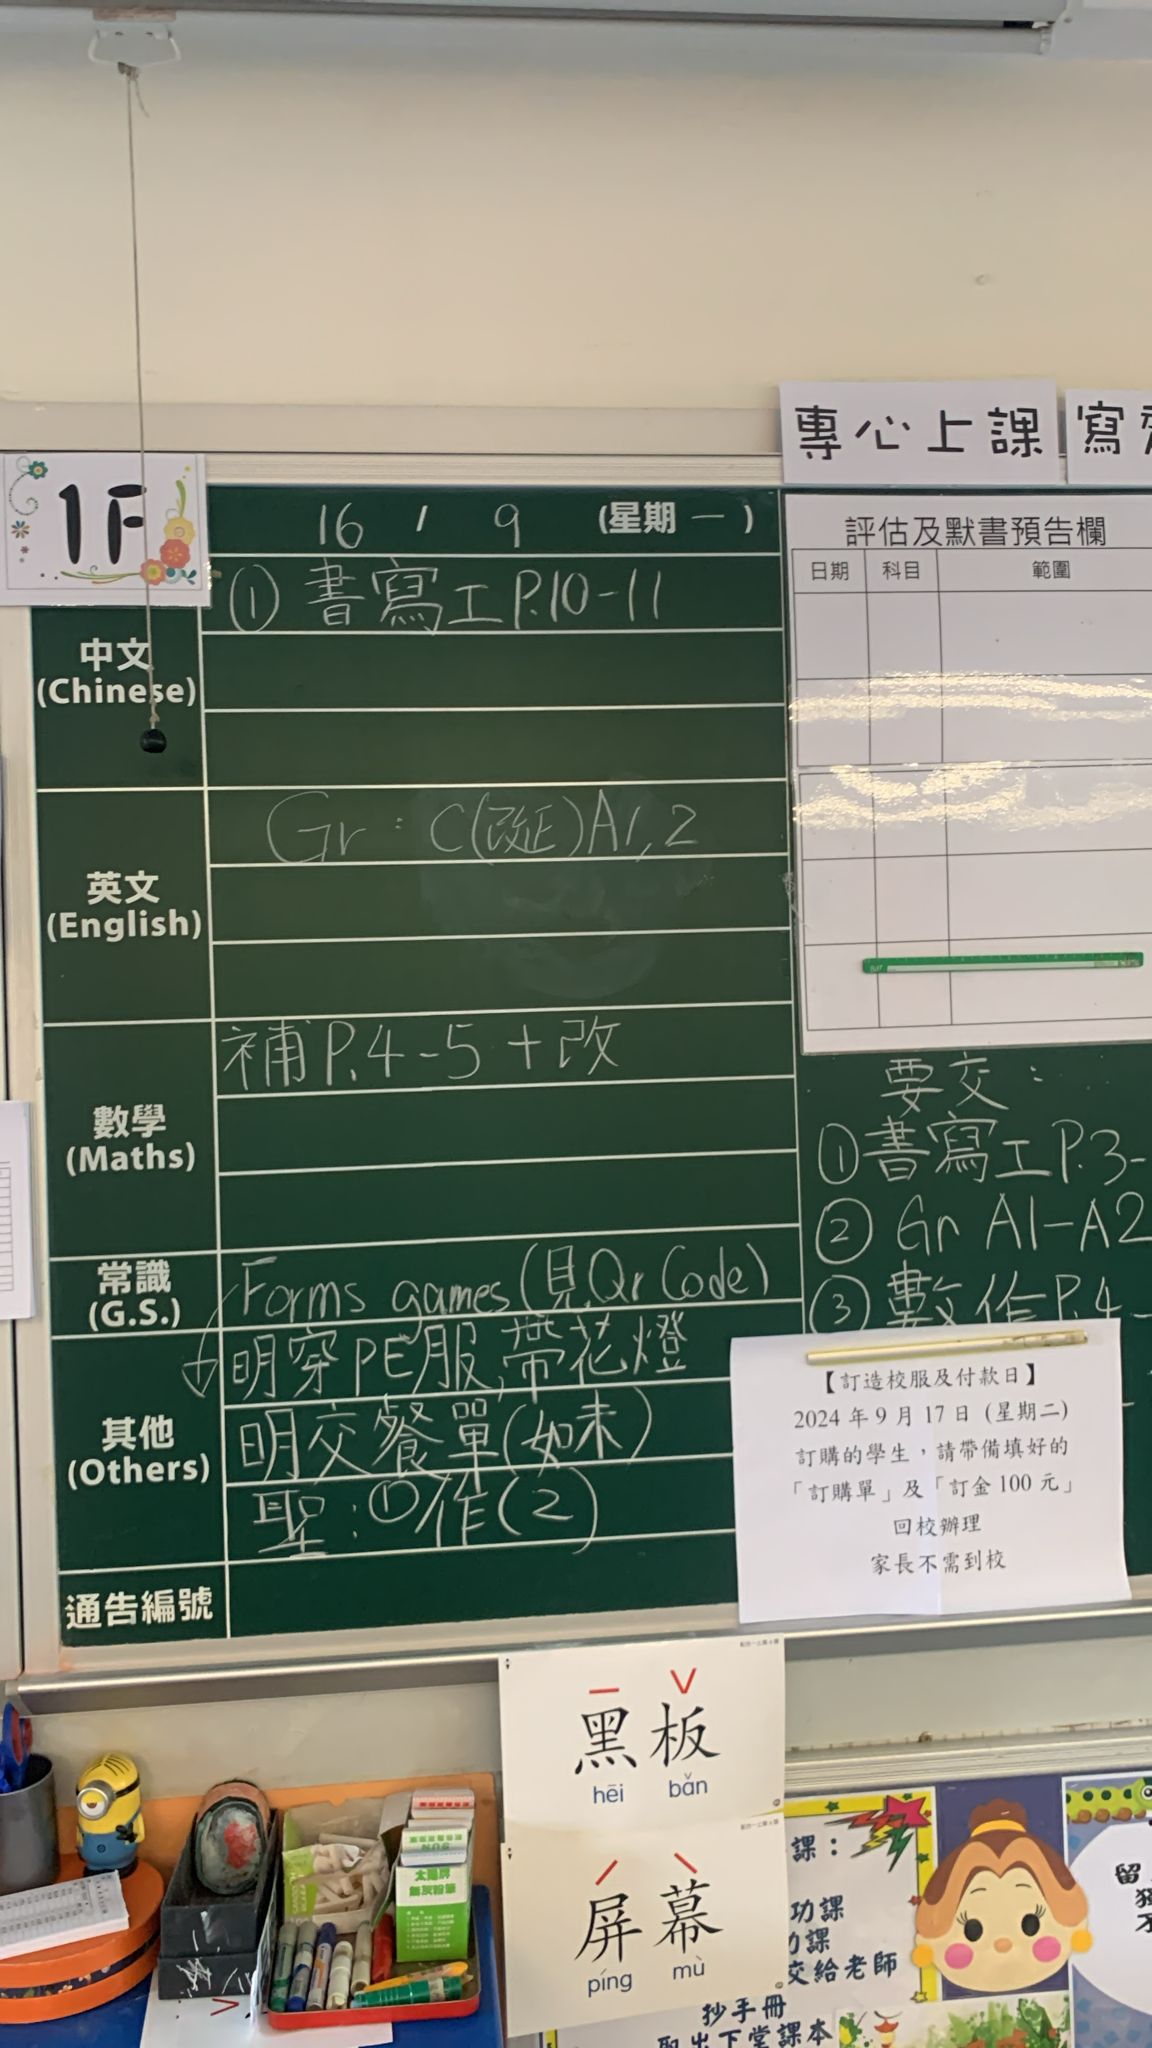 專心上課
寫
1F
16 / 9 (星期一)
中文
(Chinese)
① 書寫工 P.10-11
英文
(English)
Gr : C(改正)A1,2
數學
(Maths)
補 P.4-5 + 改
常識
(G.S.)
Forms games (見Qr Code)
其他
(Others)
明穿PE服,帶花燈
明交餐單(如未)
聖:①作(2)
通告編號
評估及默書預告欄
日期 科目 範圍
要交:
①書寫工P.3-
② Gr A1-A2
③ 數作P.4-
【訂造校服及付款日】
2024年9月17日 (星期二)
訂購的學生,請帶備填好的
「訂購單」及「訂金100元」
回校辦理
家長不需到校
黑板
hēi bǎn
屏幕
píng mù
太陽牌
無灰粉筆
課:
功課
功課
交給老師
抄手冊
取出下堂課本
留